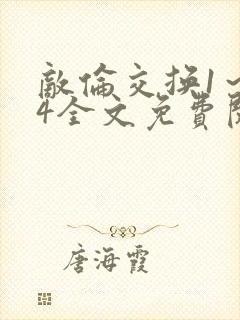 敵倫交換1~
4全文免費閱
唐海霞